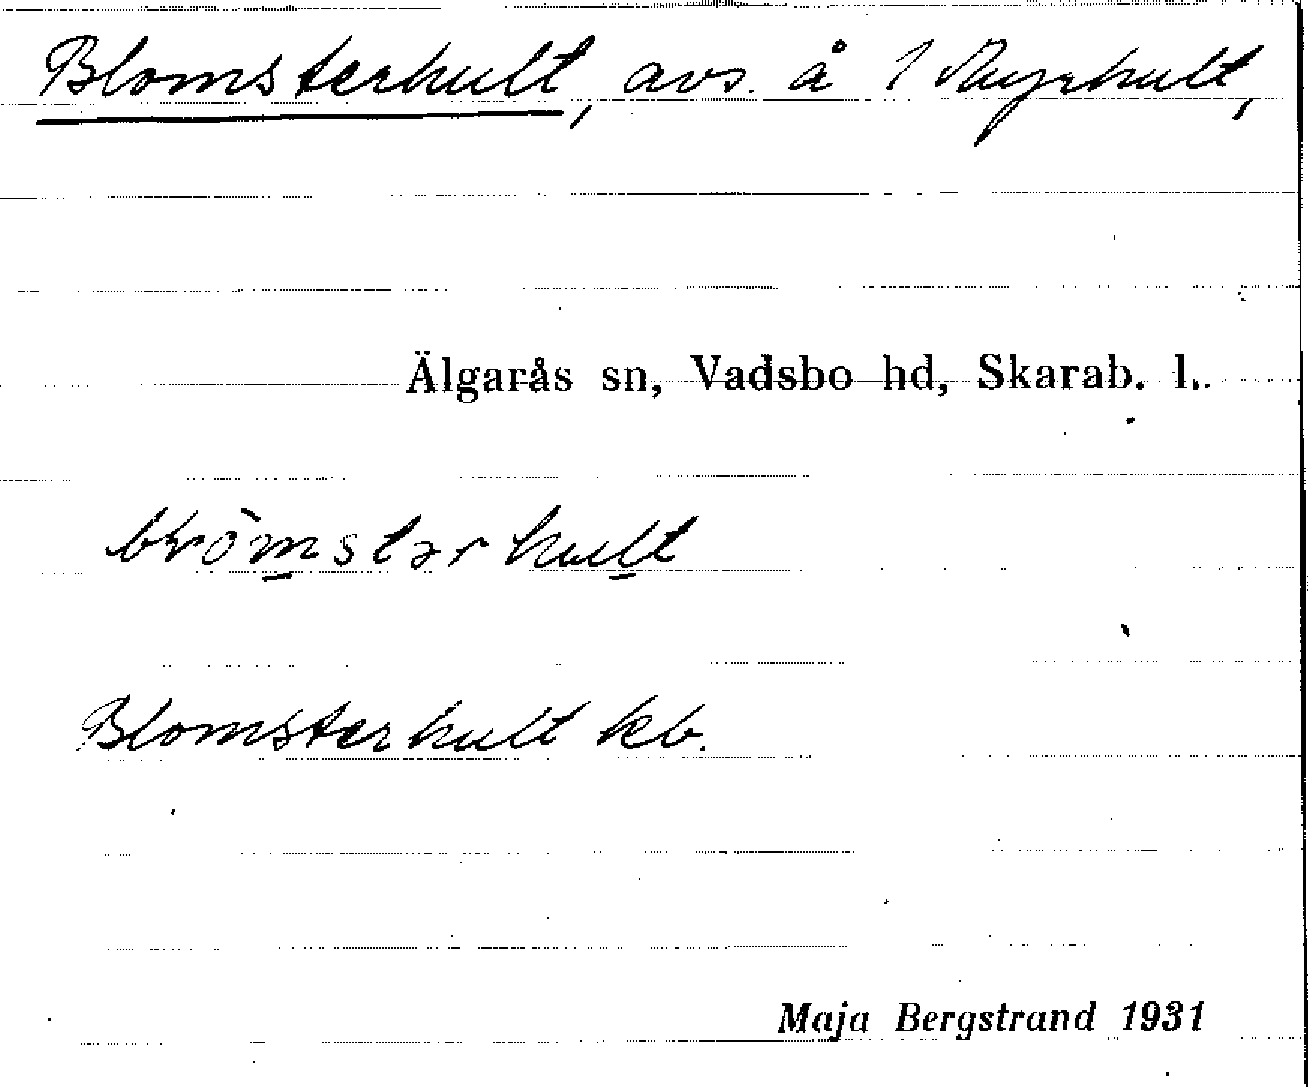 Blomsterhult, avs. å 1 Myrhult,
Älgarås sn, Vadsbo hd, Skarab. l.
Blomsterhult kb.
Maja Bergstrand 1931